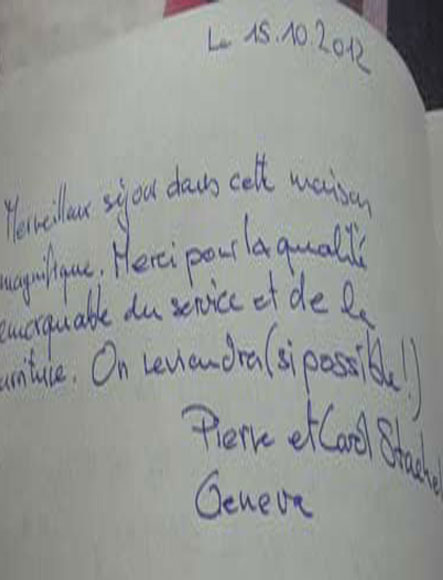 Le 15.10.2012
Merveilleux séjour dans cette maison
magnifique. Merci pour la qualité
remarquable du service et de la
On reviendra (si possible!)
Pierre et Carol
Geneva